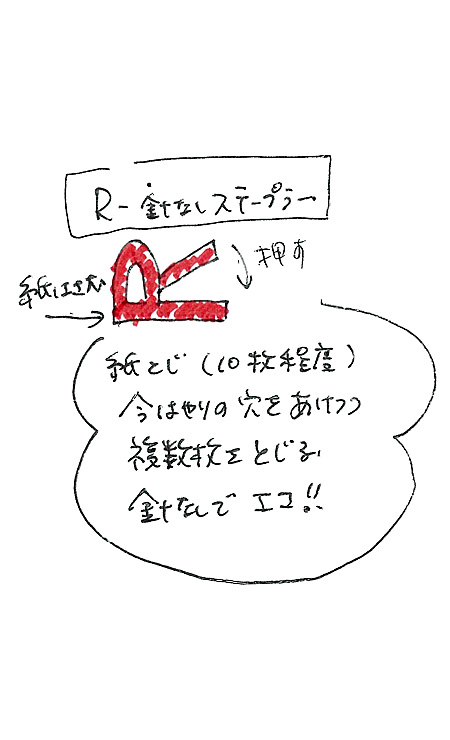 R-針なしステープラー
押す
紙はさむ
紙とじ(10枚程度)
今はやりの穴をあけつつ
複数枚をとじる、
針なしでエコ!!